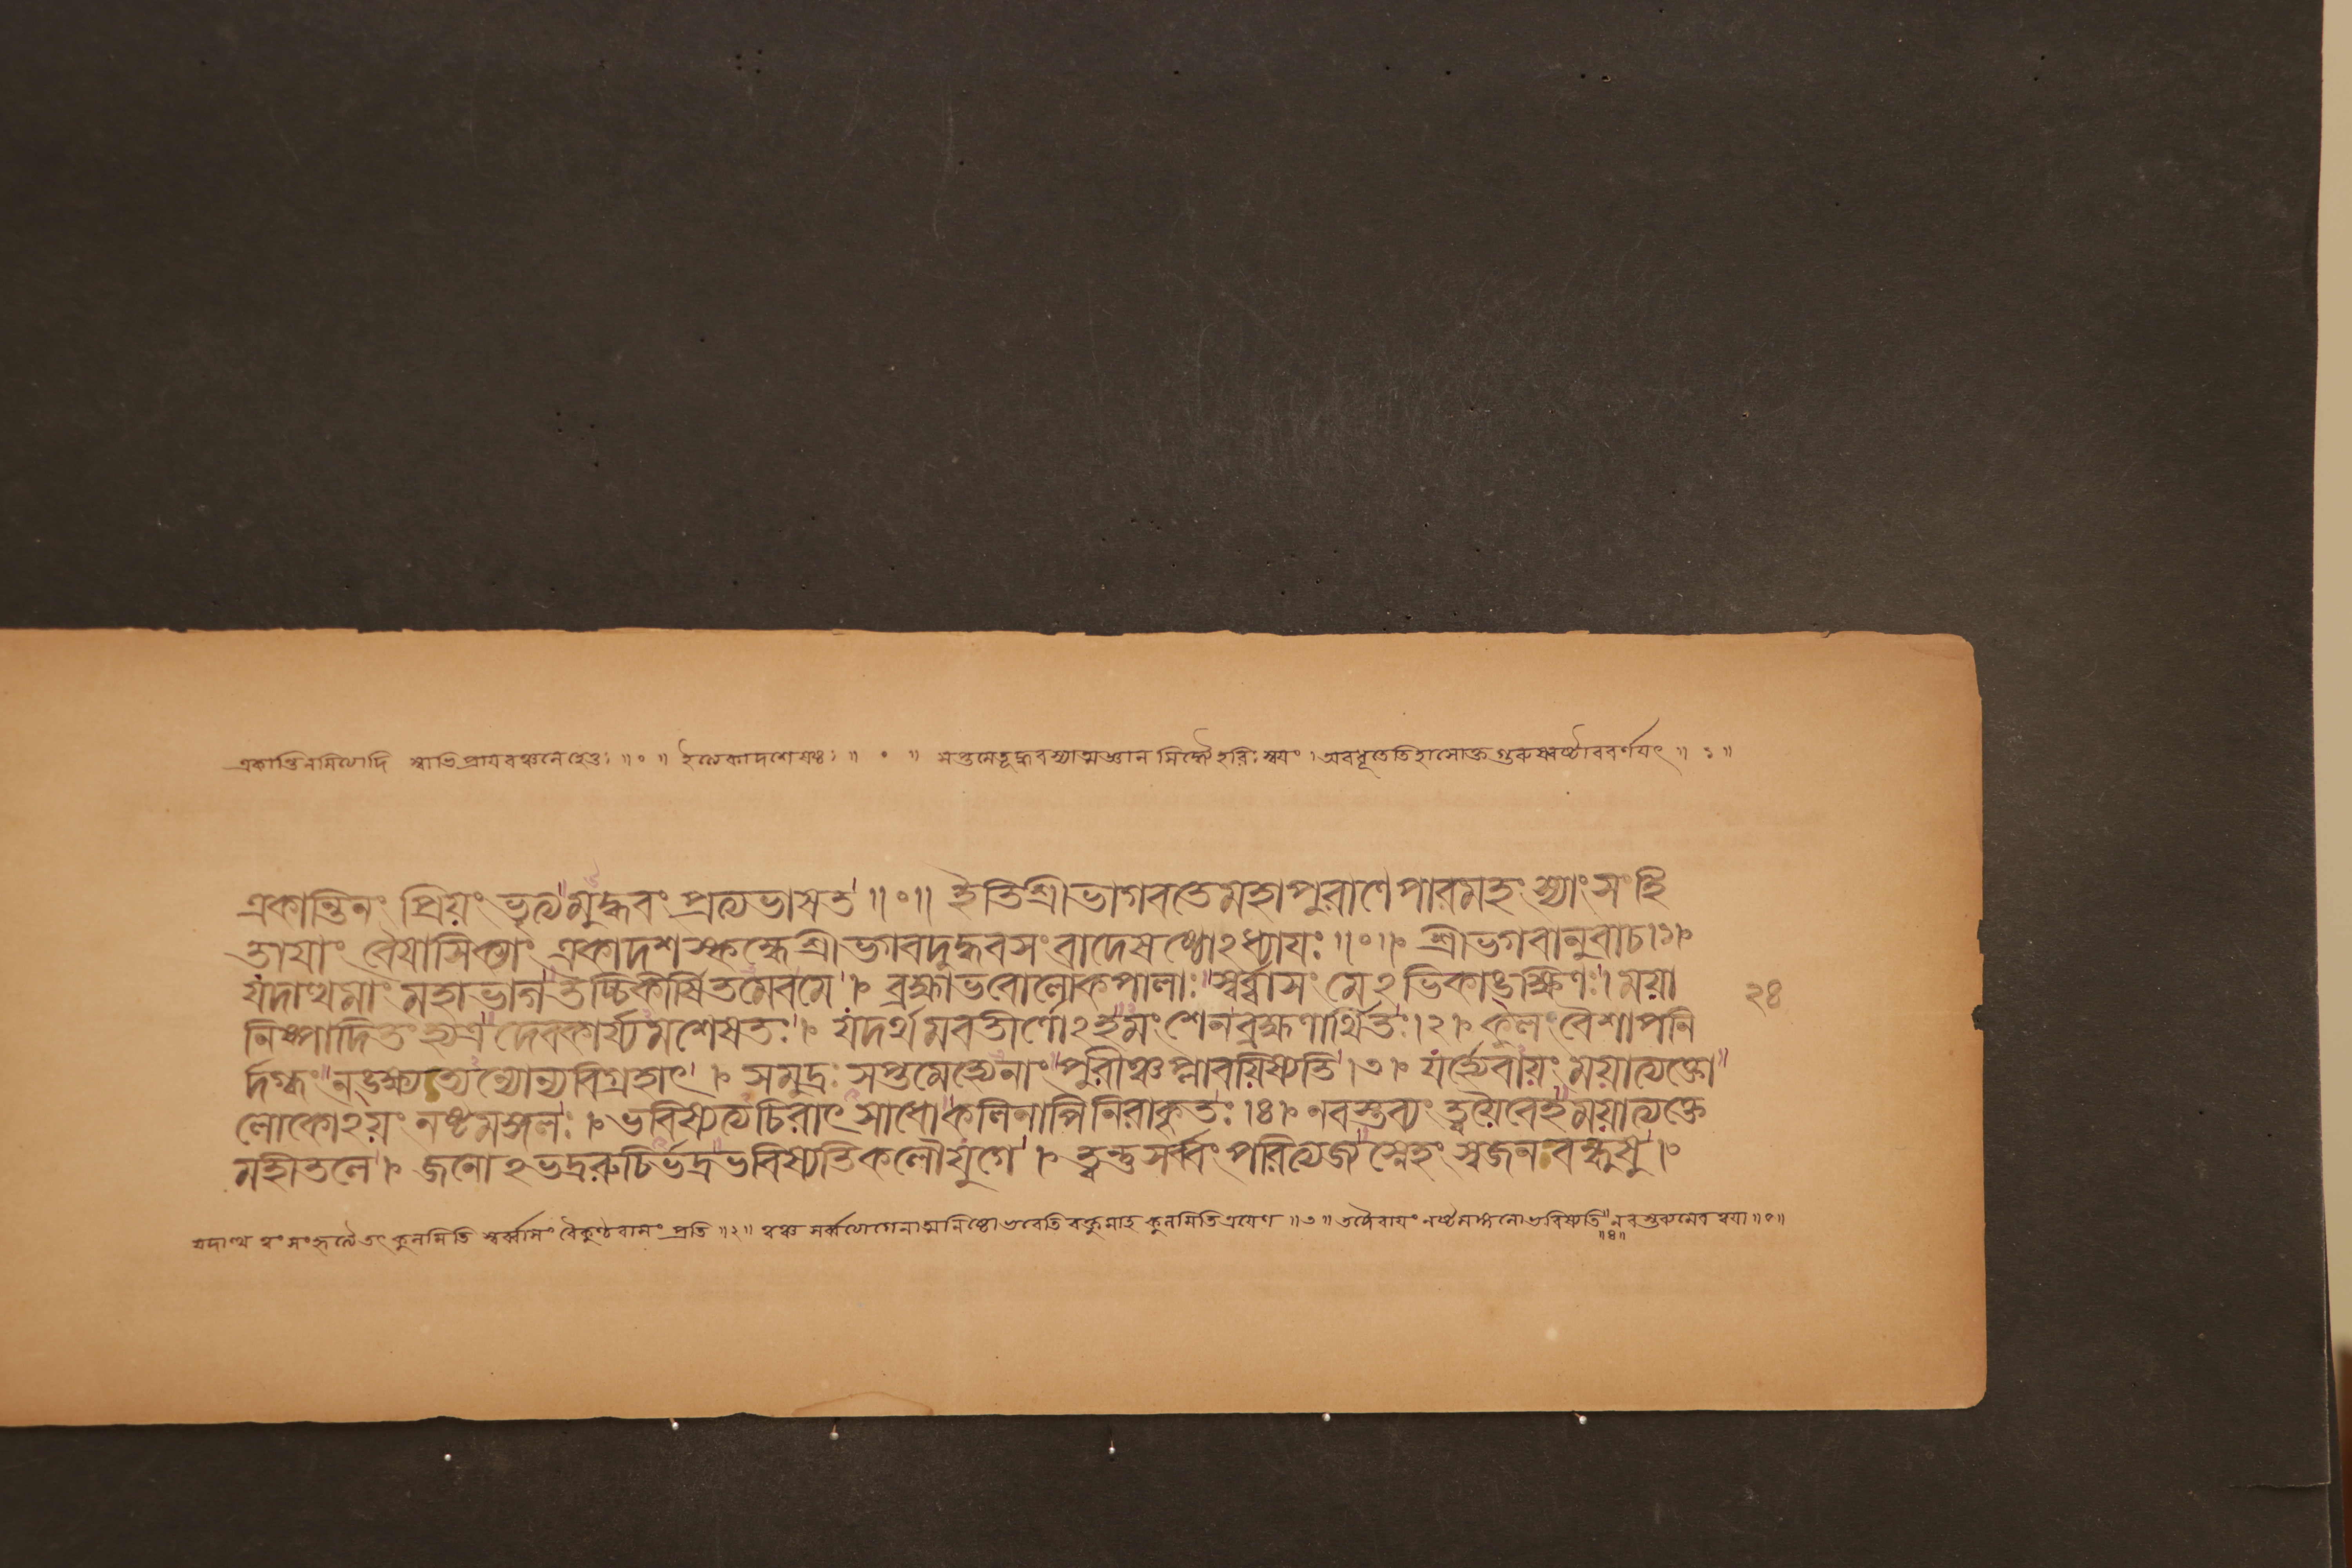 একান্তিনমিত্যাদি স্বাভিপ্রায়বঞ্চনেহেতুঃ ॥ ০ ॥ ইত্যেকাদশেষষ্ঠঃ ॥ ০ ॥ সপ্তমেতূদ্ধবস্যাত্মজ্ঞান সিদ্ধ্যৈহরিঃস্বয়ং । অবধূতেতিহাসোক্তগুরূনষ্টাববর্ণযৎ ॥ ঃ ॥
একান্তিনং প্রিয়ং ভৃত্যমুদ্ধবং প্রত্যভাষত ॥ ০ ॥ ইতিশ্রীভাগবতেমহাপুরাণেপারমহংস্যাংসংহি
তাযাং বৈযাসিক্যাং একাদশস্কন্ধেশ্রীভগবদুদ্ধবসংবাদেষষ্ঠোঽধ্যাযঃ ॥ ০ ॥ শ্রীভগবানুবাচ ।১।
যদাত্থমাং মহাভাগতচ্চিকীর্ষিতমেবমে । ব্রহ্মাভবোলোকপালাঃস্বর্ব্বাসং মেঽভিকাঙ্ক্ষিণঃ । ময়া
২৪
নিষ্পাদিতং হ্যত্র দেবকার্য্যমশেষতঃ । যদর্থমবতীর্ণোঽহমংশেনব্রহ্মণার্থিতঃ ।২। কুলং বৈশাপনি
র্দগ্ধংনঙ্ক্ষ্যত্যন্যোন্যবিগ্রহাৎ । সমুদ্রঃ সপ্তমেহ্যেনাংপুরীঞ্চপ্লাবয়িষ্যতি ।৩। যর্হ্যেবায়ং ময়াত্যক্তো
লোকোঽয়ং নষ্টমঙ্গলঃ । ভবিষ্যত্যচিরাৎসাধোকলিনাপিনিরাকৃতঃ ।৪। নবস্তব্যং ত্বয়ৈবেহময়াত্যক্তে
মহীতলে । জনোঽভদ্ররুচির্ভদ্রভবিষ্যতিকলৌযুগে । ত্বন্তুসর্ব্বং পরিত্যজ্যস্নেহং স্বজনবন্ধুষু ।
যদাত্থ ত্বং সংহৃত্যৈতৎ কুলমিতি স্বর্ব্বাসং বৈকুণ্ঠবাসং প্রতি ॥২॥ কুলমিতিত্রযেণ ॥৩॥ ॥৪॥